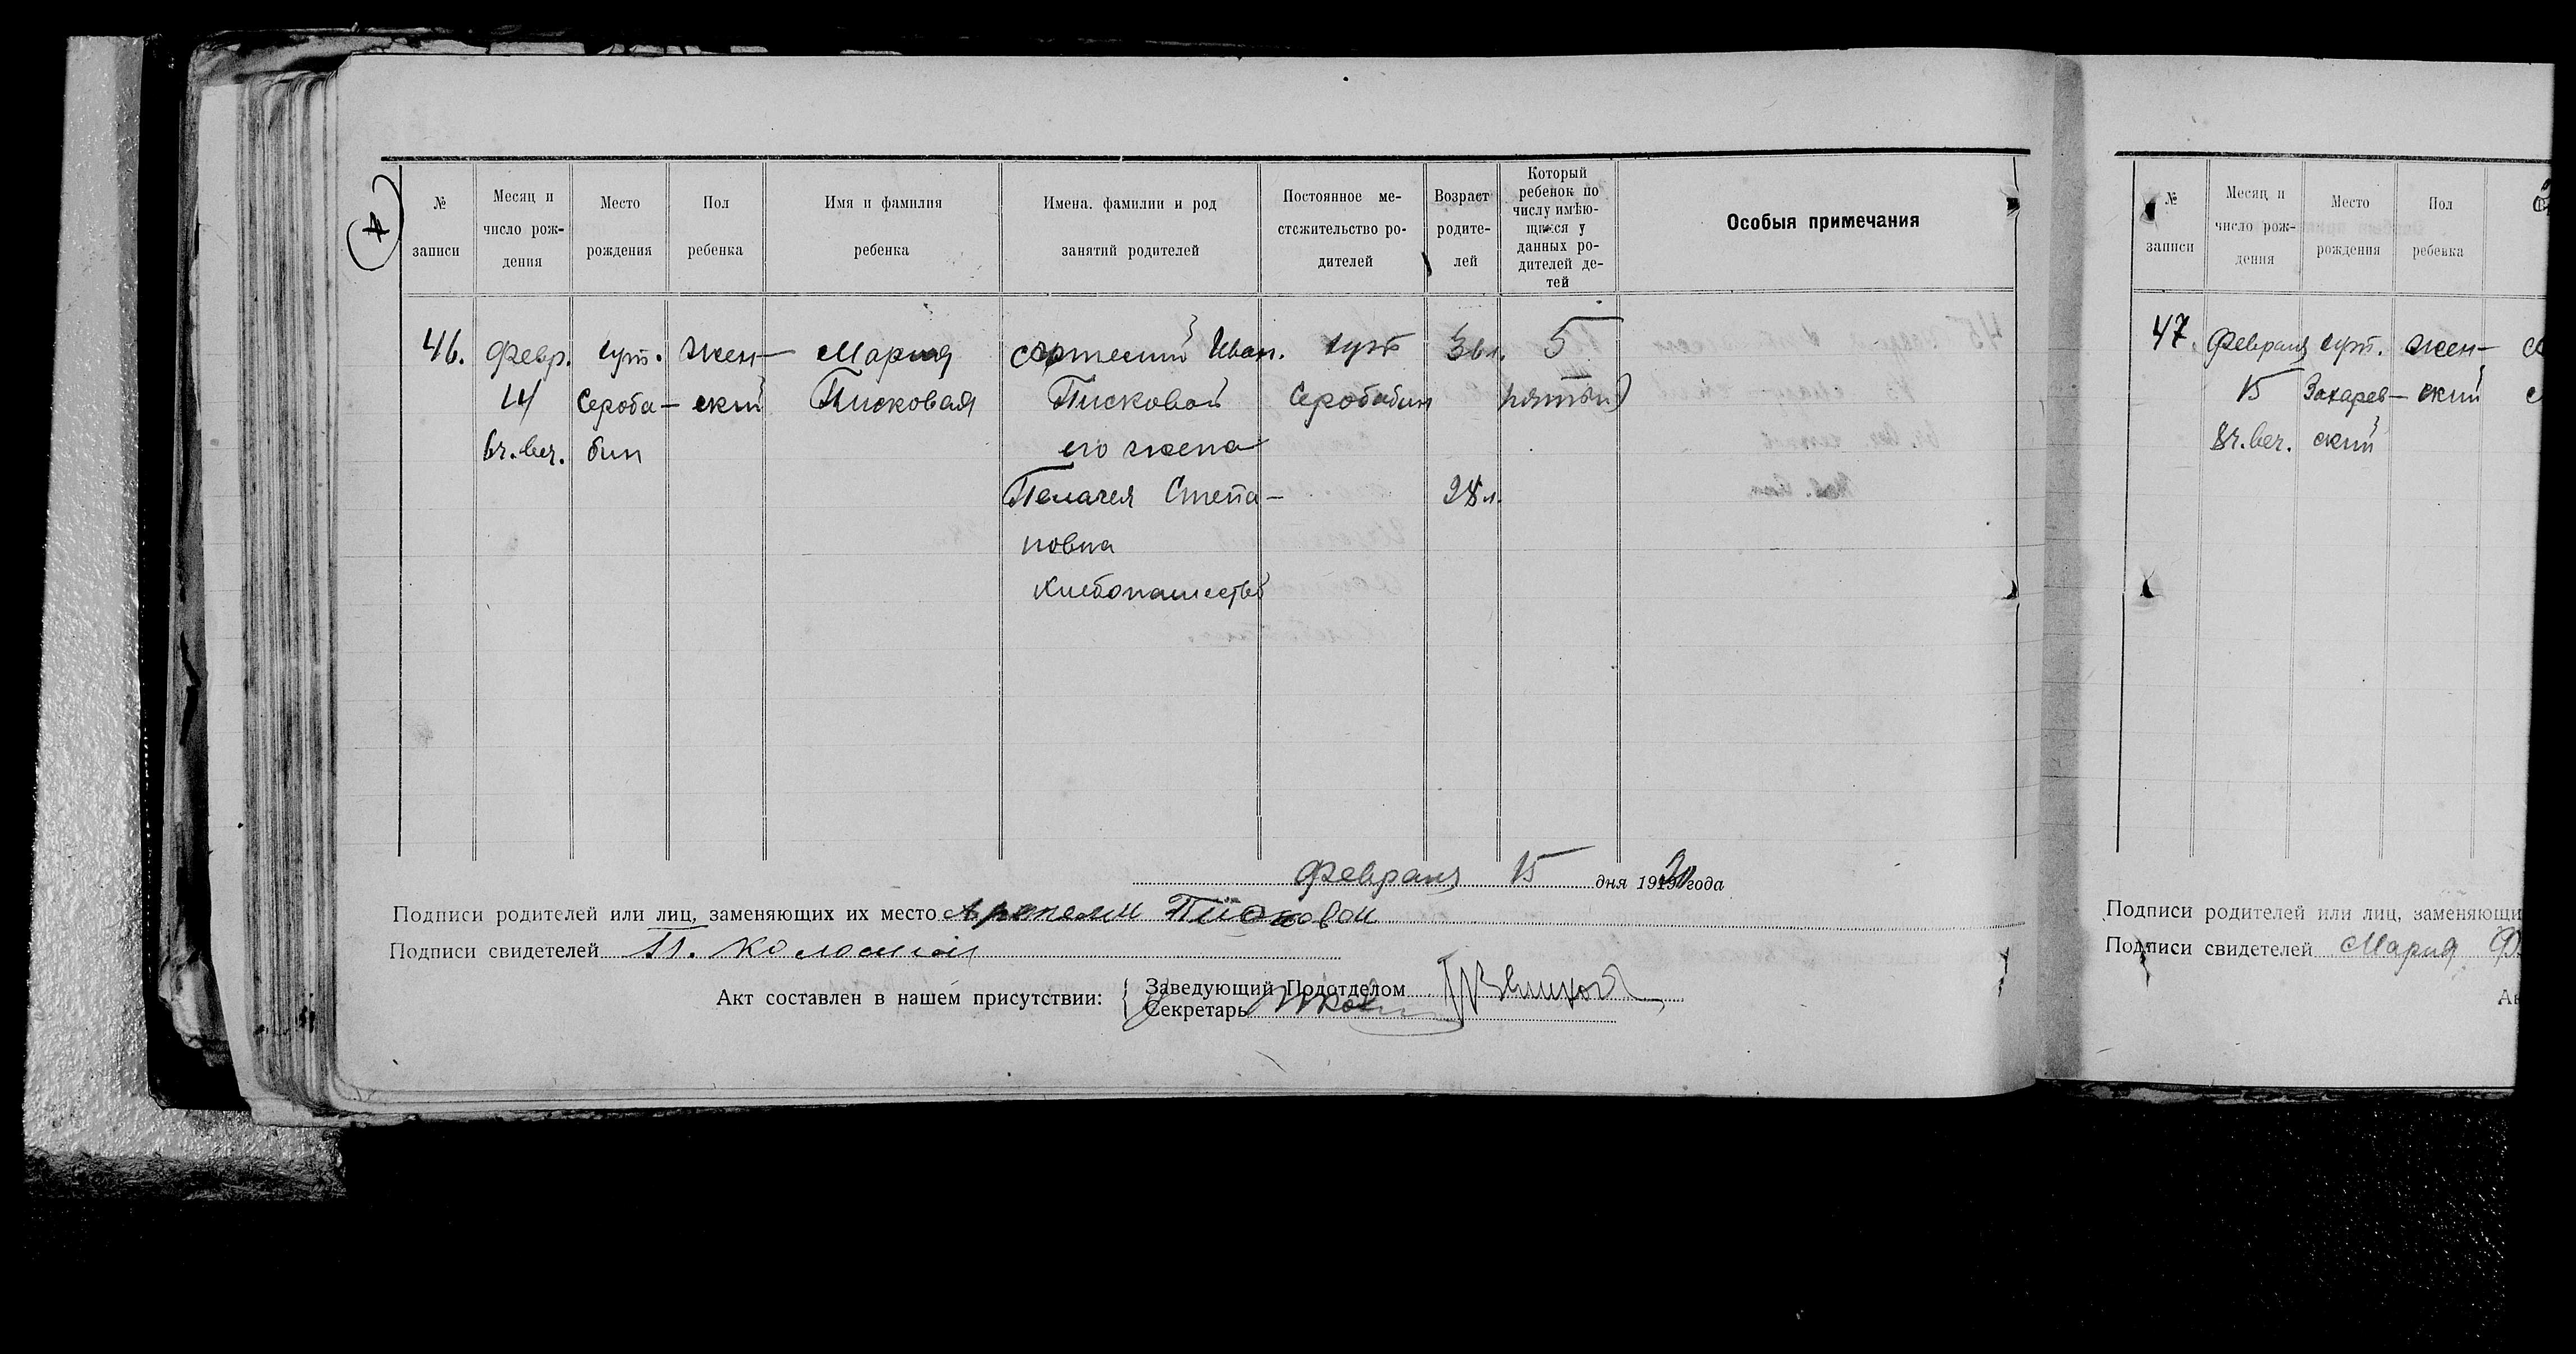 № записи
Месяц и число рождения
Место рождения
Пол ребенка
Имя и фамилия ребенка
Имена. фамилии и род занятий родителей
Постоянное местожительство родителей
Возраст родителей
Который ребенок по числу имѣющихся у данных родителей детей
Особыя примечания
46. Февр. хут. жен— Мария Иван. хут 5
14 Сероба— ский Писковая Писковой Серобабин пятый
6 ч. веч. бин его жена
Пелагея Степа— 28 л.
новна
хлебопашество
Февраля 15 дня 1920 года
Подписи родителей или лиц, заменяющих их место Писковой
Подписи свидетелей П.
Акт составлен в нашем присутствии:
Заведующий Подотделом
Секретарь
№ записи
Месяц и число рождения
Место рождения
Пол ребенка
47. Февраля хут. жен—
15 Захарев— ский
8 ч. веч. ский
Подписи родителей или лиц, заменяющи
Подписи свидетелей Мария